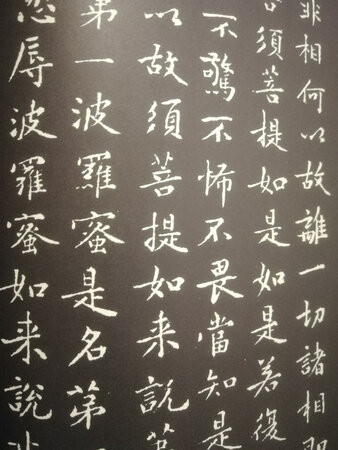 非相何以故離一切諸相即
須菩提如是如是若復
不驚不怖不畏當知是
以故須菩提如来說第
第一波羅蜜是名第一
忍辱波羅蜜如来說非